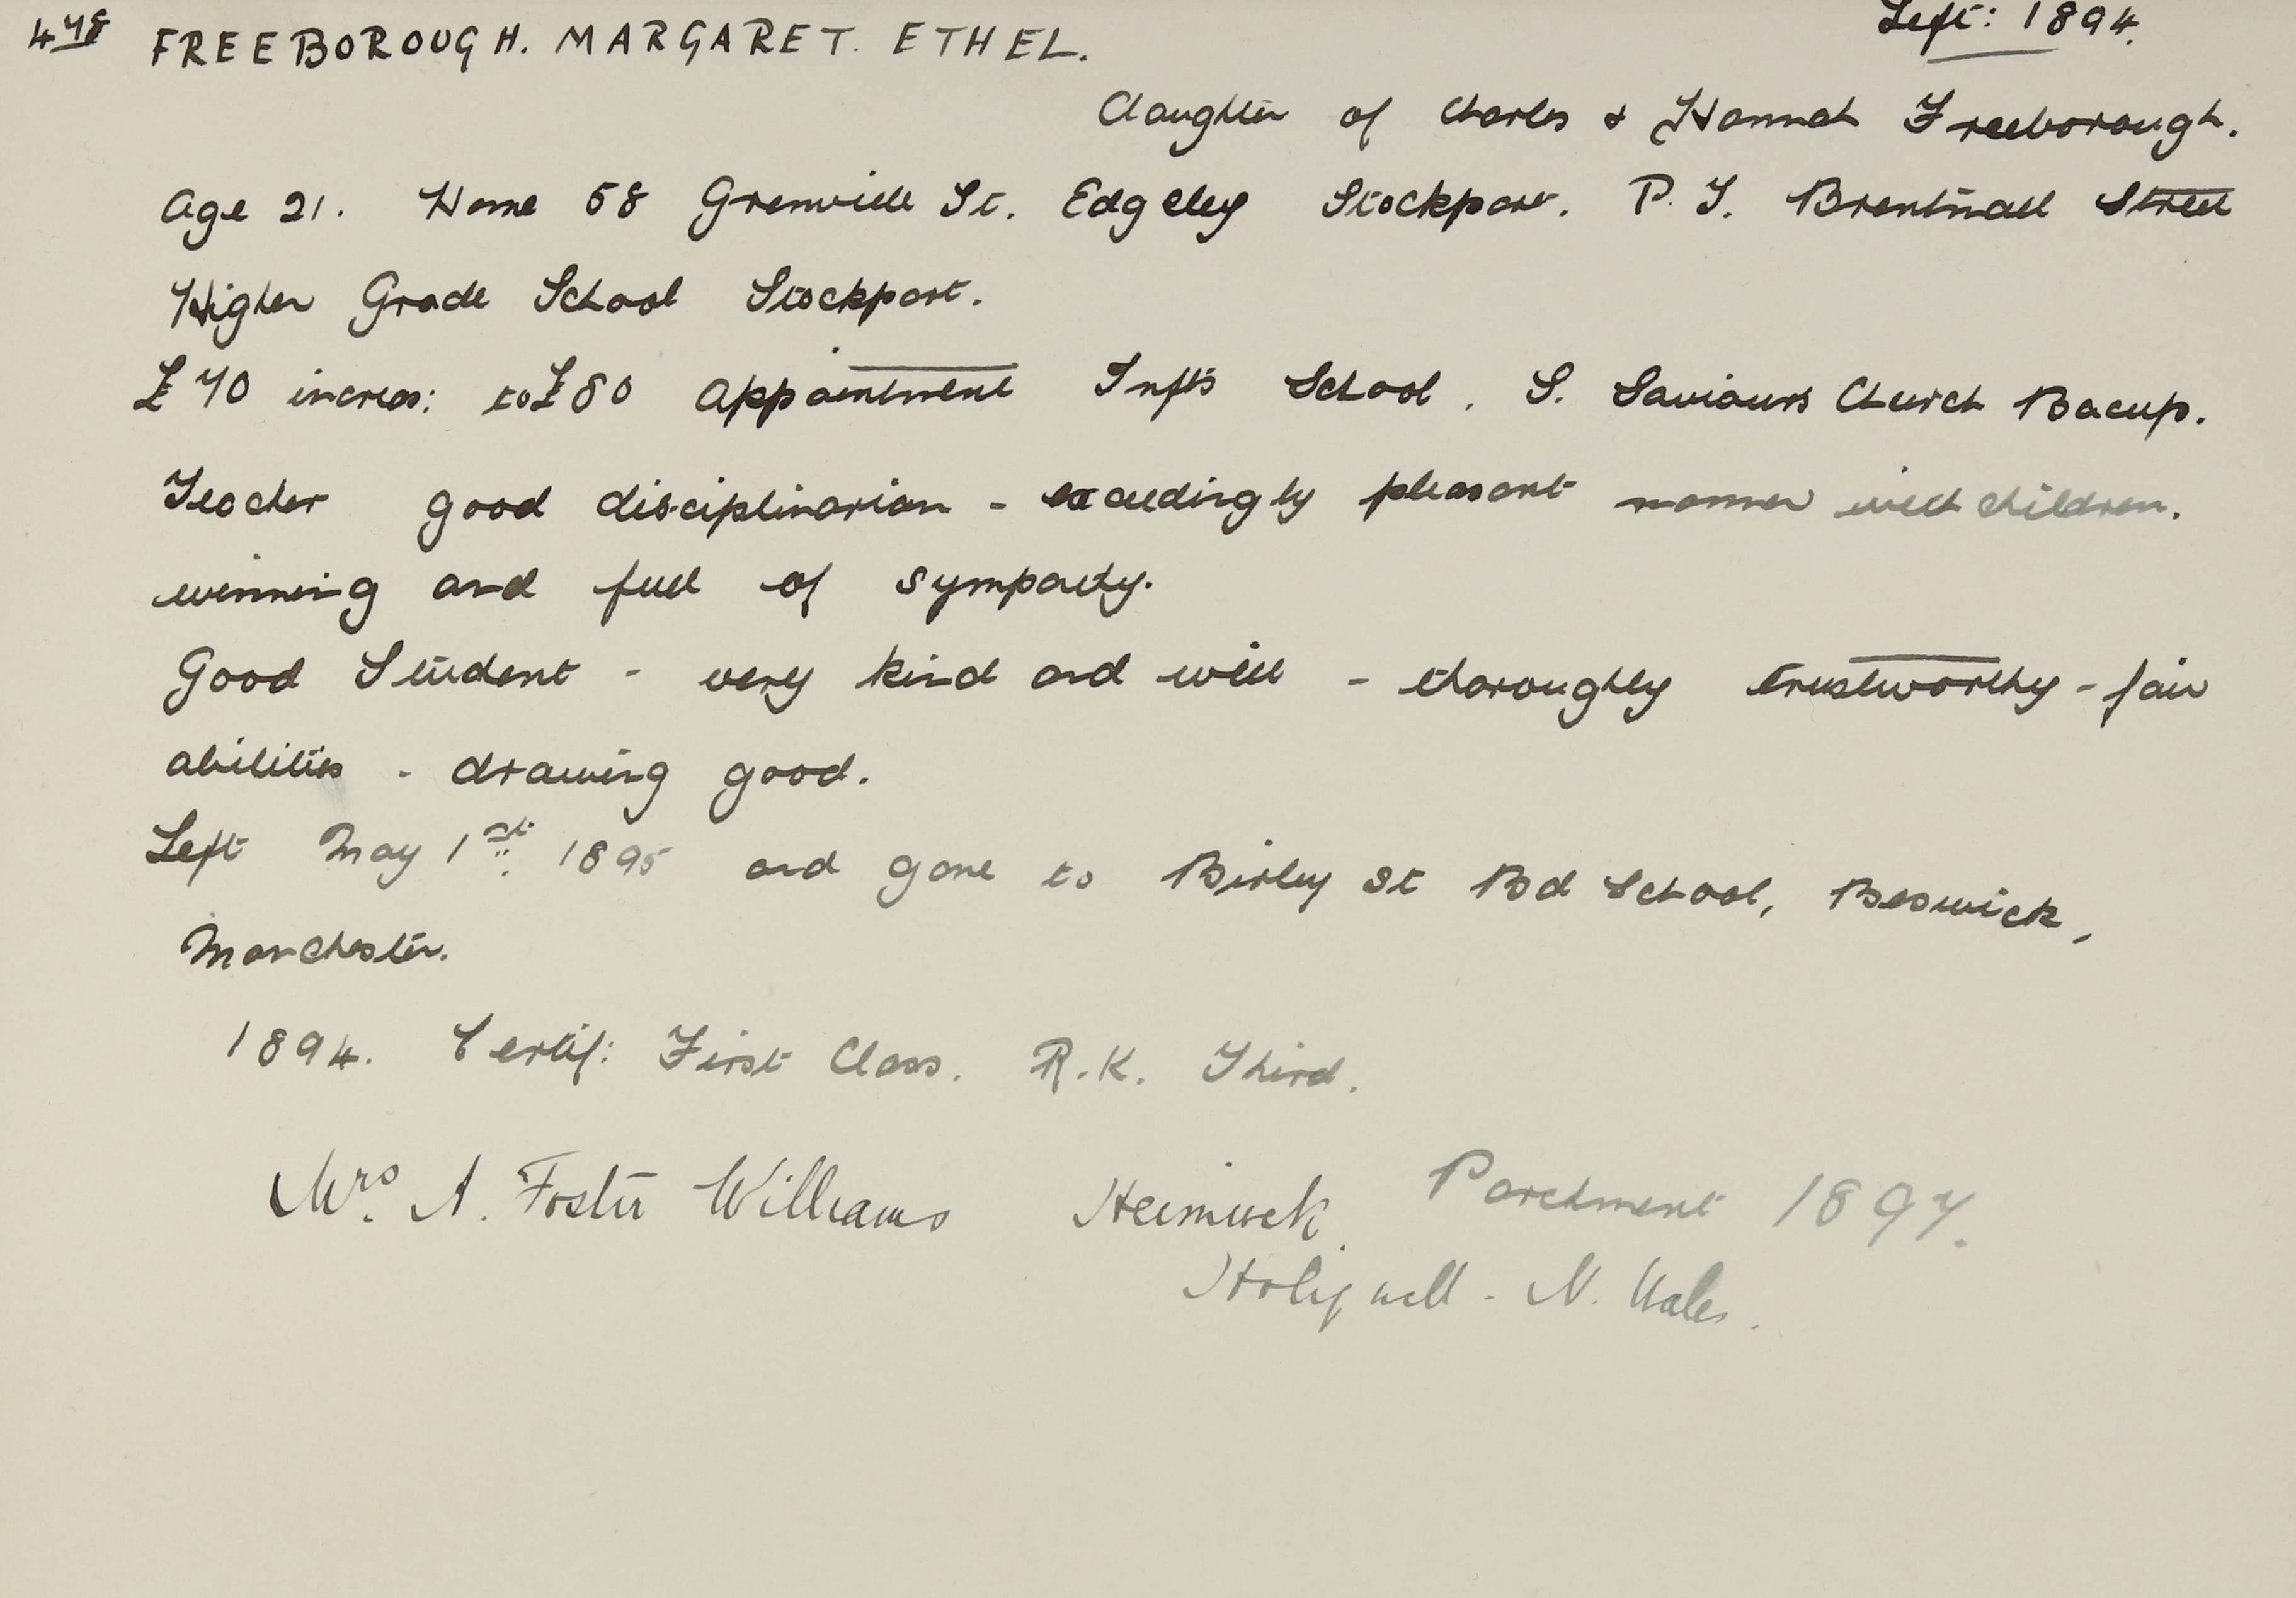 478 FREEBOROUGH. MARGARET. ETHEL. Left: 1894.
daughter of Charles & Hannah Freeborough.
Age 21. Home 58 Grenville St. Edgeley Stockport. P.T. Brentnall Street
Higher Grade School Stockport.
£70 increas: to £80 Appointment Infts School. S. Saviours Church Bacup.
Teacher good disciplinarian - exceedingly pleasant manner with children.
winning and full of sympathy.
Good Student - very kind and will - thoroughly trustworthy - fair
abilities - drawing good.
Left May 1st. 1895 and gone to Birley St Bd School, Beswick,
Manchester.
1894. Certif: First Class. R.K. Third.
Mrs. A. Foster Williams Parchment 1897.
Holywell - N. Wales.